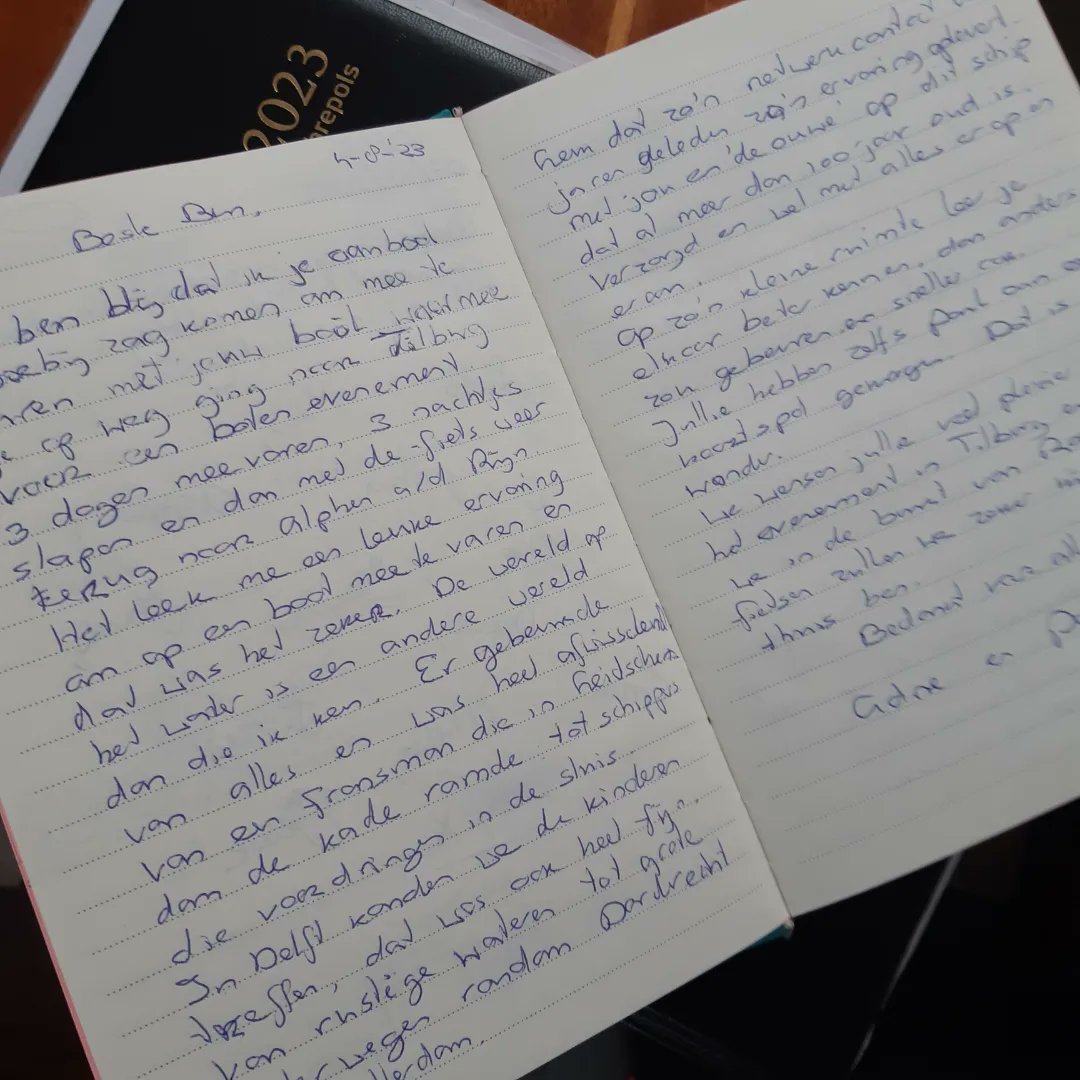 2023
repols
4-8-'23
Beste Ben,
ben blij dat ik je aanbod
voorbij zag komen om mee te
varen met jouw boot
je op weg ging naar Tilburg
voor een boten evenement.
3 dagen mee varen, 3 nachtjes
slapen en dan met de fiets weer
terug naar Alphen a/d Rijn.
Het leek me een leuke ervaring
om op een boot mee te varen en
dat was het zeker. De wereld op
het water is een andere wereld
dan die ik ken. Er gebeurde
van alles en was heel afwisselend
van en Fransman die in Leidschen
dam de kade ramde tot schippers
die voordringen in de sluis.
In Delft konden we de kinderen
treffen, dat was ook heel fijn.
Van rustige wateren tot grote
wegen rondom Dordrecht
erdam.
hem dat zo'n netwerk contact
jaren geleden zo'n ervaring oplevert.
met jou en 'de ouwe' op dit schip
dat al meer dan 100 jaar oud is.
verzorgd en wel met alles er op en
er aan.
op zo'n kleine ruimte leer je
elkaar beter kennen, dan anders
zou gebeuren en sneller ook.
Jullie hebben zelfs
noodstop gemaakt. Dat is
wonder.
We wensen jullie veel plezier
het evenement in Tilburg en
we in de buurt van
fietsen zullen we
thuis ben.
Bedankt voor all
en